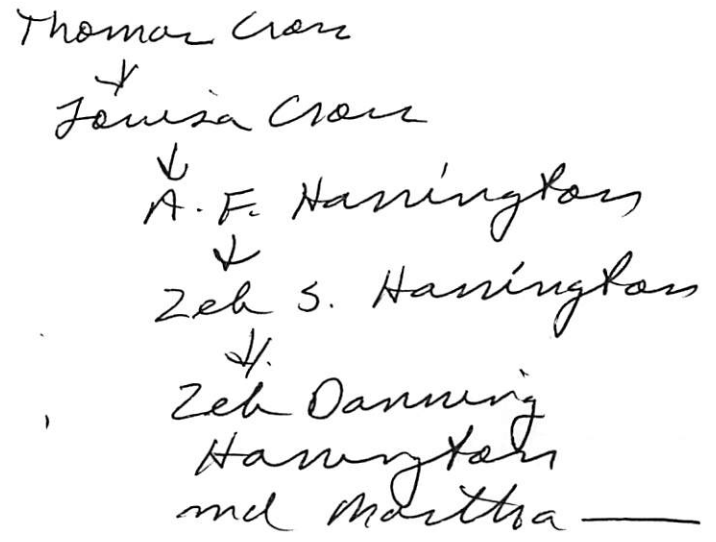 Thomas Cross
↓
Louisa Cross
↓
A. F. Harrington
↓
Zeb S. Harrington
↓
Zeb Danning
Harrington
md Martha ——